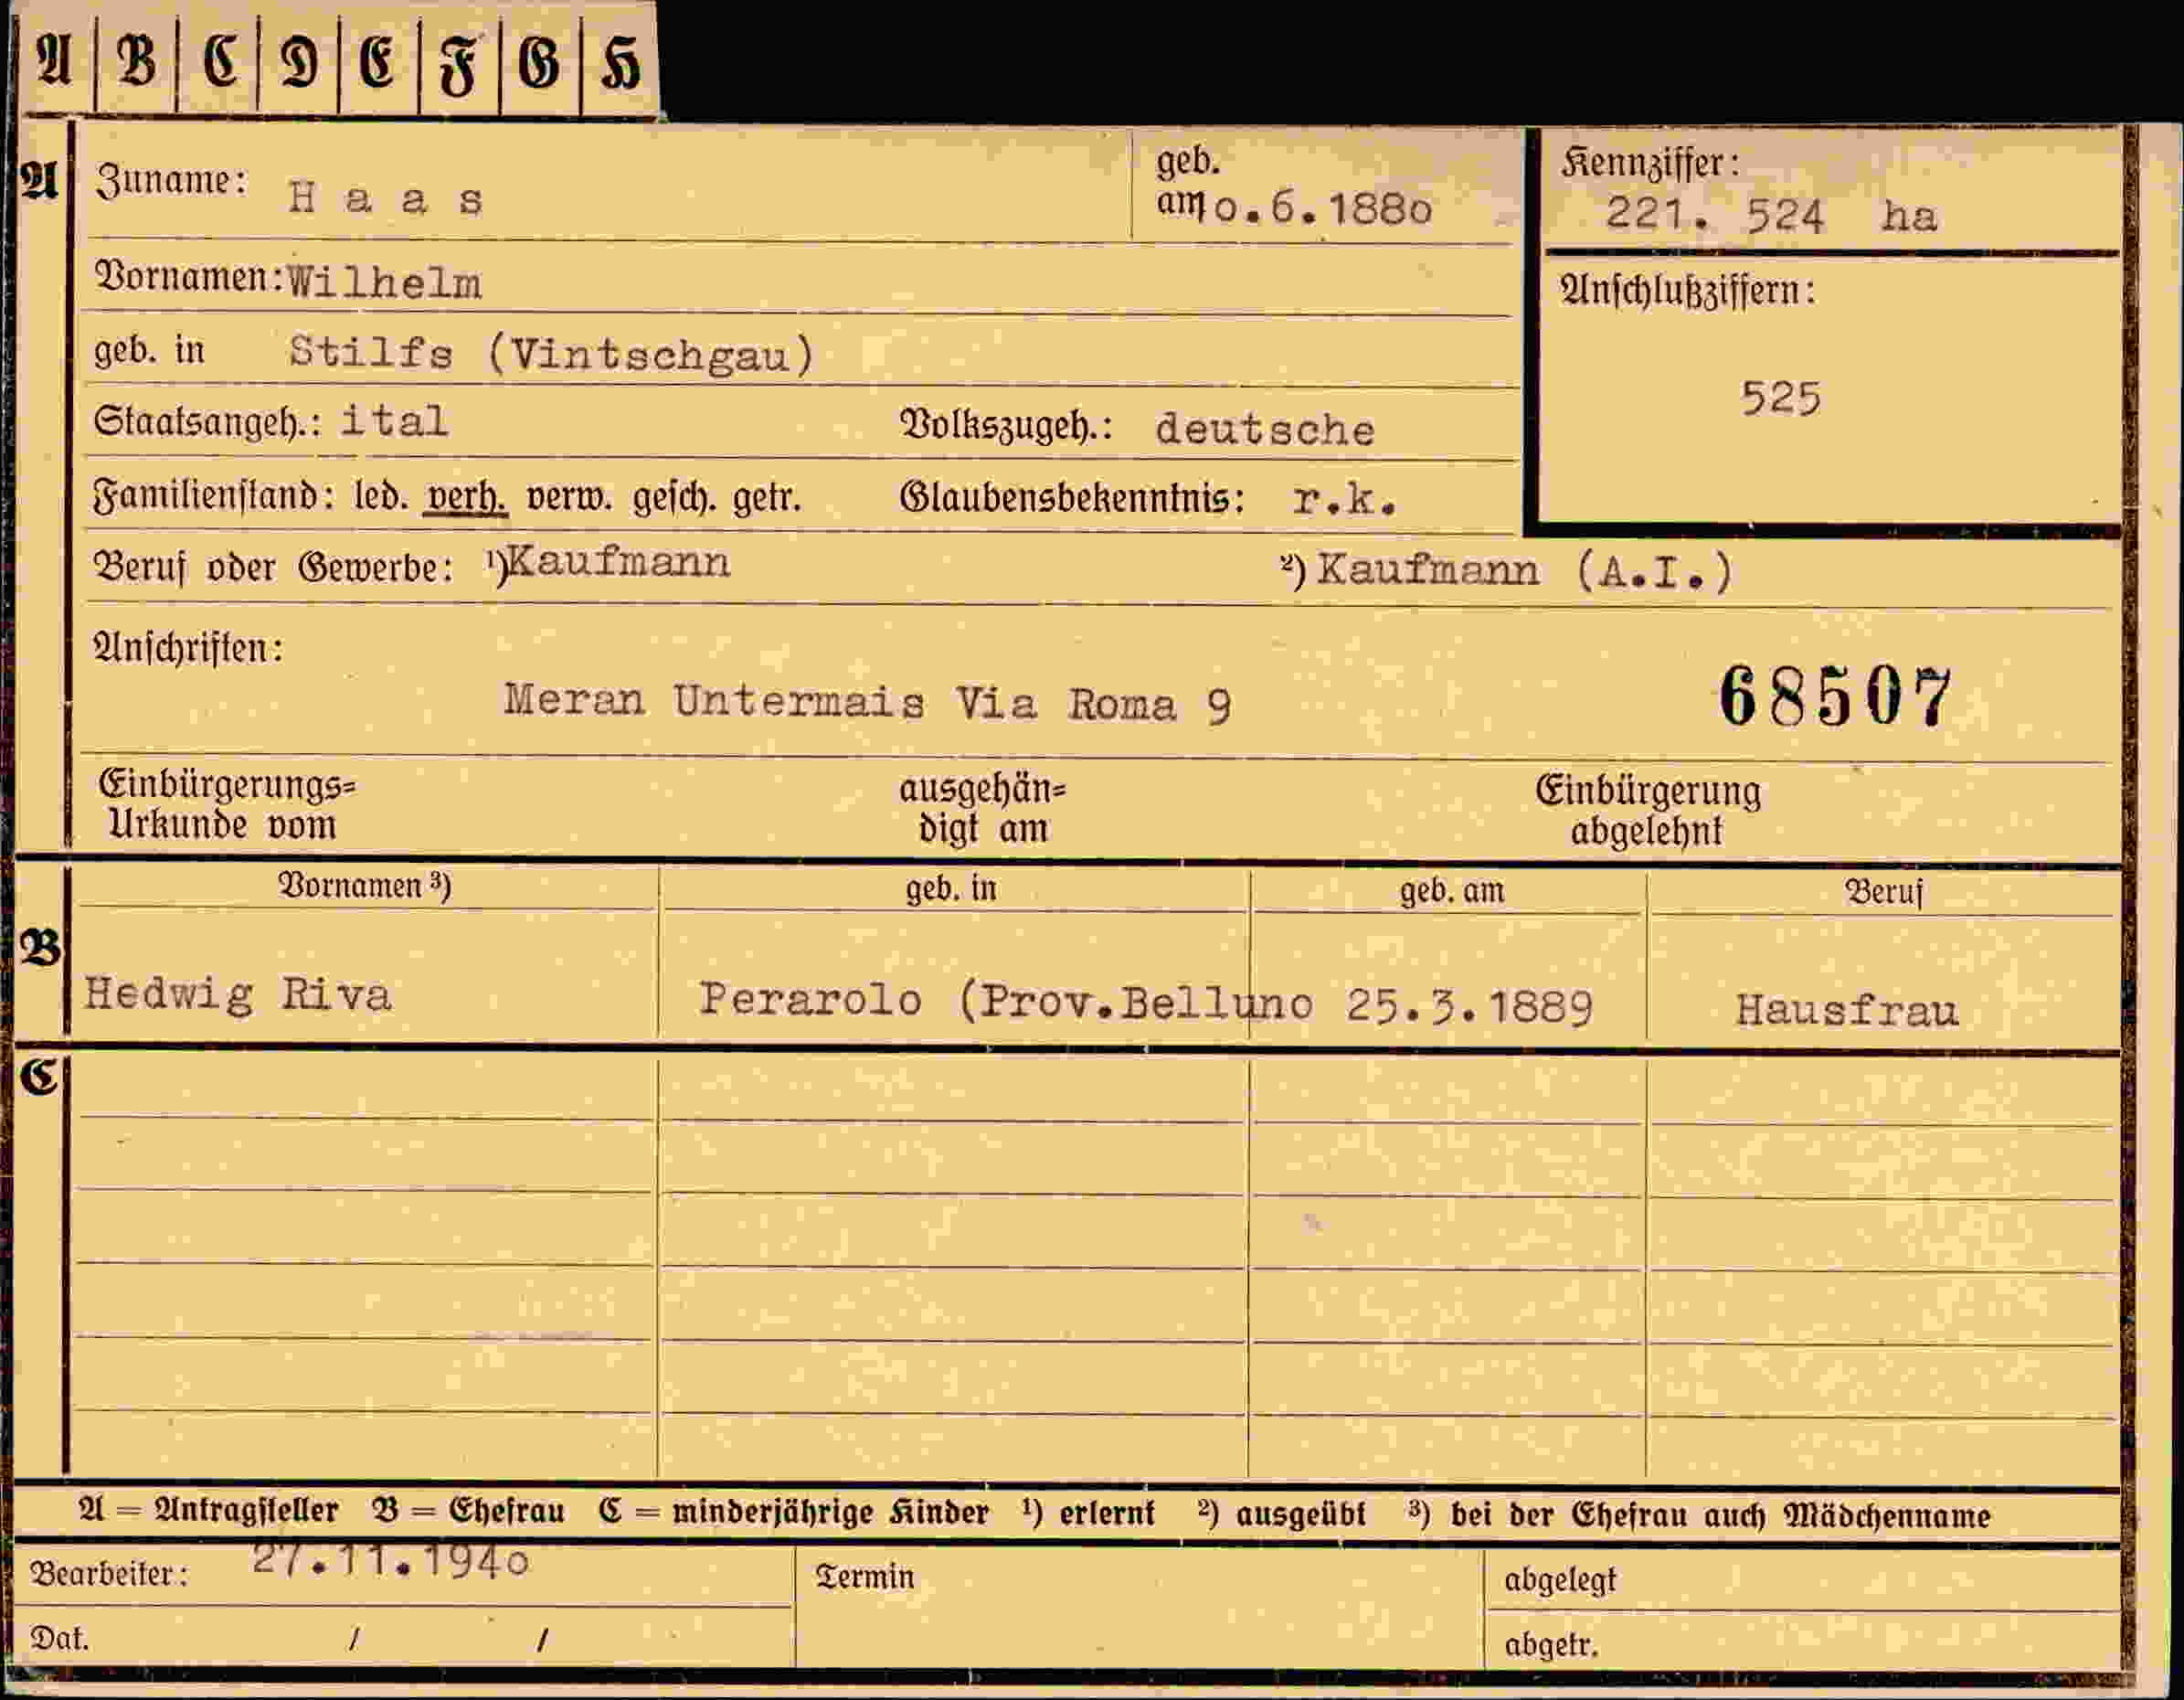 A B C D E F G H
A Zuname: H a a s geb. am 10.6.1880 Kennziffer: 221. 524 ha
Vornamen: Wilhelm Anschlußziffern:
geb. in Stilfs (Vintschgau)
525
Staatsangeh.: ital Volkszugeh.: deutsche
Familienstand: led. verh. verw. gesch. getr. Glaubensbekenntnis: r.k.
Beruf oder Gewerbe: ¹)Kaufmann ²) Kaufmann (A.I.)
Anschriften:
Meran Untermais Via Roma 9 68507
Einbürgerungs= ausgehän= Einbürgerung
Urkunde vom digt am abgelehnt
Vornamen ³) geb. in geb. am Beruf
B
Hedwig Riva Perarolo (Prov.Belluno 25.3.1889 Hausfrau
C
A = Antragsteller B = Ehefrau C = minderjährige Kinder ¹) erlernt ²) ausgeübt ³) bei der Ehefrau auch Mädchenname
Bearbeiter: 27.11.1940 Termin abgelegt
Dat. / / abgetr.